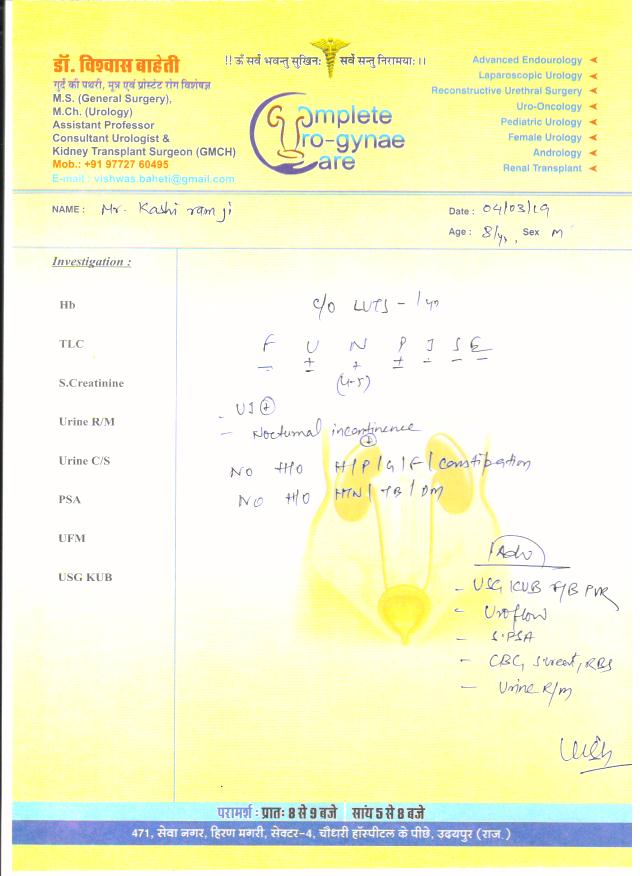 डॉ. विश्वास बाहेती
गुर्दे की पथरी, मूत्र एवं प्रोस्टेट रोग विशेषज्ञ
M.S. (General Surgery),
M.Ch. (Urology)
Assistant Professor
Consultant Urologist &
Kidney Transplant Surgeon (GMCH)
Mob.: +91 97727 60495
E-mail : vishwas.baheti@gmail.com
!! ऊँ सर्वे भवन्तु सुखिनः सर्वे सन्तु निरामयाः ।।
Complete
Uro-gynae
Care
Advanced Endourology
Laparoscopic Urology
Reconstructive Urethral Surgery
Uro-Oncology
Pediatric Urology
Female Urology
Andrology
Renal Transplant
NAME : Mr. Kashi ram ji
Date : 04/03/19
Age : 8/yr, Sex M
Investigation :
Hb
TLC
S.Creatinine
Urine R/M
Urine C/S
PSA
UFM
USG KUB
C/O LUTS - 1 yr
F U N P I S E
- + + + - - -
(4-5)
- UI +
- Nocturnal incontinence +
NO H/O H/P/G/F/ constipation
NO H/O HTN/ TB/ DM
Adv
- USG KUB PVR
- Uroflow
- S.PSA
- CBC, S.creat, RBS
- Urine R/m
परामर्श : प्रातः 8 से 9 बजे सांय 5 से 8 बजे
471, सेवा नगर, हिरण मगरी, सेक्टर-4, चौधरी हॉस्पीटल के पीछे, उदयपुर (राज.)